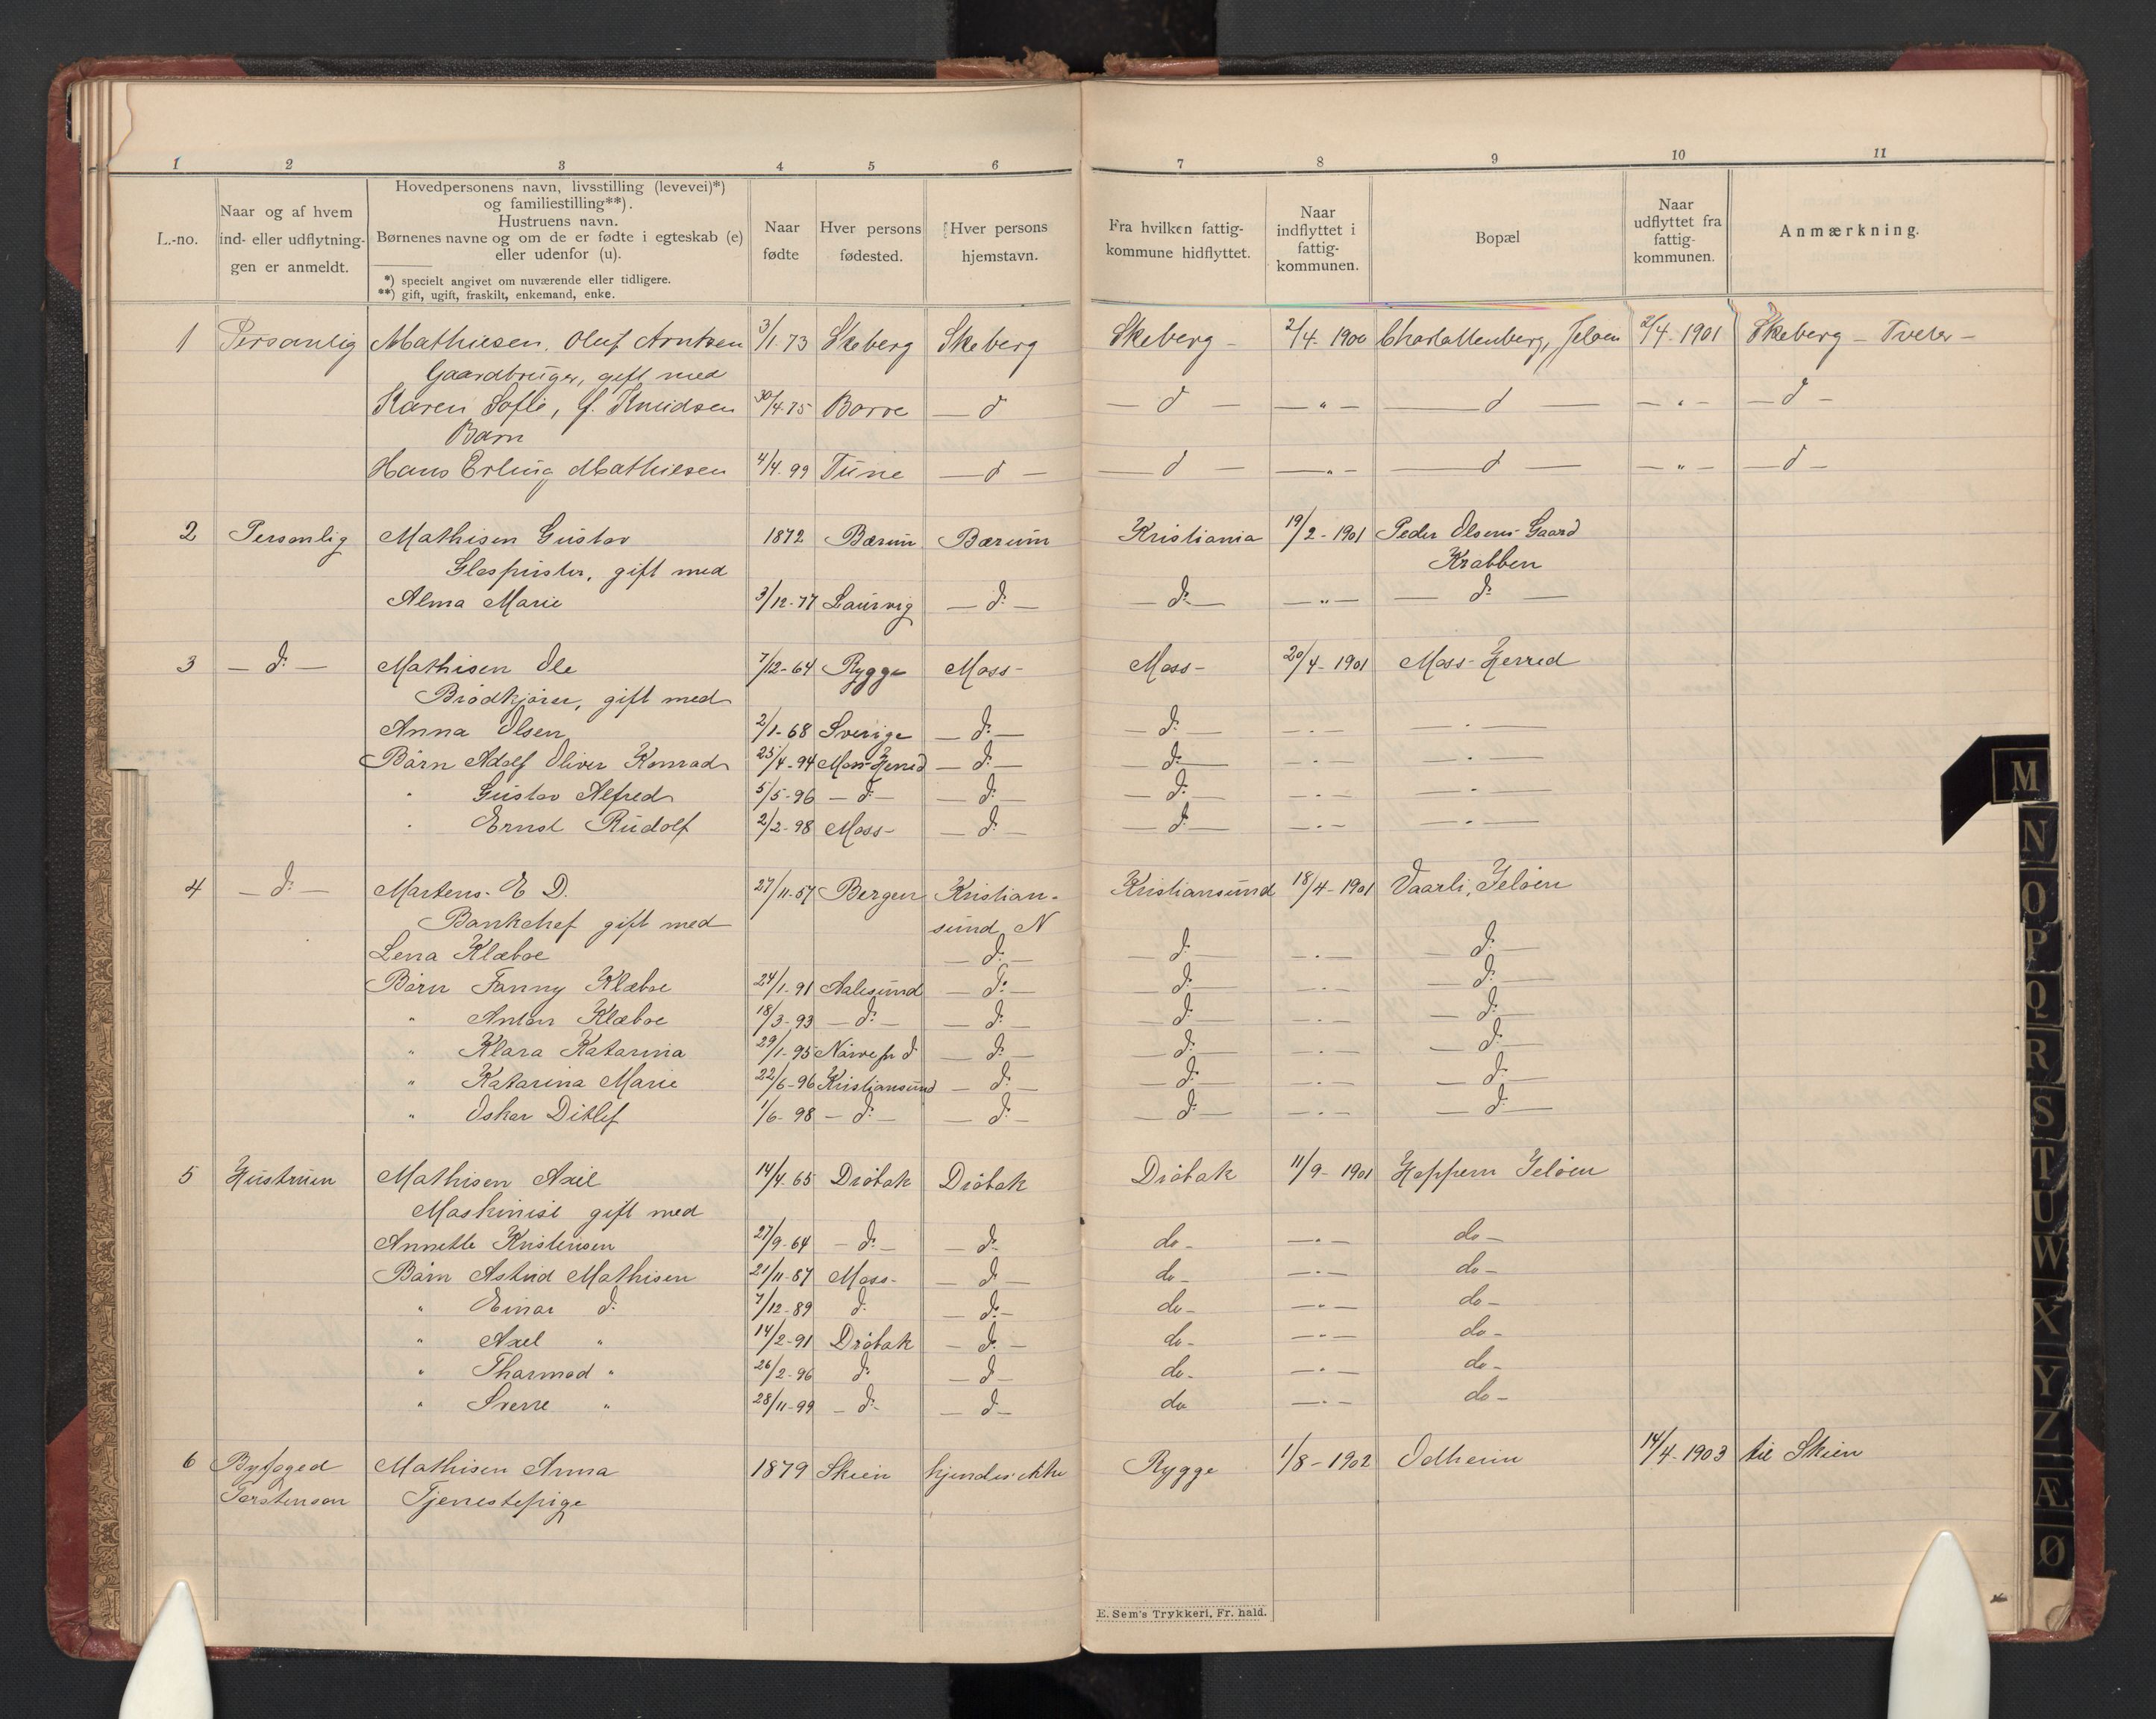 1 2 3 4 5 6 7 8 9 10 11
L.-no.
Naar og af hvem
ind- eller udflytnin-
gen er anmeldt.
Hovedpersonens navn, livsstilling (levevei)*)
og familiestilling**).
Hustruens navn.
Børnenes navne og om de er fødte i egteskab (e)
eller udenfor (u).
*) specielt angivet om nuværende eller tidligere.
**) gift, ugift, fraskilt, enkemand, enke.
Naar
fødte
Hver persons
fødested.
Hver persons
hjemstavn.
Fra hvilken fattig-
kommune hidflyttet.
Naar
indflyttet i
fattig-
kommunen.
Bopæl
Naar
udflyttet fra
fattig-
kommunen.
Anmærkning.
1 Personlig Mathiesen, Oluf Arntsen 3/1 73 Skeberg Skeberg Skeberg – 2/4 - 1900 Charlottenberg, Jeløen 2/4 - 1901 Skeberg – Tveter –
Gaardbruger, gift med
Karen Sofie, f. Knudsen 30/4 75 Borre — d — d — — " — — d — — " — — d —
Barn
Hans Erling Mathiesen 4/4. 99 Tune — d — — d — — " — — d — — " — — d —
2 Personlig Mathisen Gustav 1872 Bærum Bærum Kristiania 19/2 - 1901 Peder Olsens Gaard
Glaspuster, gift med Krabben
Alma Marie 3/12 - 77 Laurvig — d: — — d: — — " — — d: —
3 — d: — Mathisen Ole 7/12 - 64 Rygge Moss - Moss - 20/4 - 1901 Moss - Herred
Brødkjører, gift med
Anna Olsen 2/1 - 68 Sverige — d: — — d: — — " — — " —
Børn Adolf Oliver Konrad 25/4 - 94 Moss Herred — d: — — d: — — " — — " —
" Gustav Alfred 5/5 - 96 — d: — — d: — — d: — — " — — " —
" Ernst Rudolf 2/2 - 98 Moss - — d: — — d: — — " — — " —
4 — d: — Martens. E D. 27/11 - 57 Bergen Kristian- Kristiansund 18/4 - 1901 Vaarli, Jeløen
Bankchef gift med sund N
Lena Klæboe — d: — — d: — — " — — d: —
Børn Fanny Klæboe 24/1 - 91 Aalesund — d: — — d: — — " — — d: —
" Anton Klæboe 18/3 - 93 — d: — — d: — — d: — — " — — d: —
" Klara Katarina 29/1 - 95 d — d: — — d: — — " — — d: —
" Katarina Marie 22/6 - 96 Kristiansund — d: — — d: — — " — — d: —
" Oskar Ditlef 1/6 - 98 — d: — — d: — — d: — — " — — d: —
5 Hustruen Mathisen Axel 14/4 65 Drøbak Drøbak Drøbak 11/9 - 1901 Hoppern Jeløen
Maskinist gift med
Annette Kristensen 27/9 - 64 — d: — — d: — do – — " — do –
Børn Astrid Mathisen 21/11 - 87 Moss - — d: — do – — " — do –
" Einar d: 7/12 - 89 d: — d: — do – — " — do –
" Axel " 14/2 - 91 Drøbak — d: — do – — " — do –
" Tharmod " 26/2 - 96 d: — d — do – — " — do –
" Sverre " 28/11 - 99 — d: — — d — do — " — do –
6 Byfoged Mathisen Anna 1879 Skien kjendes ikke Rygge 1/8 - 1902 Odheim 14/4 - 1903 til Skien
Torstenson Tjenestepige
E. Sem's Trykkeri, Fr. hald.
M
N
O
P
Q
R
S
T
U
W
X
Y
Z
Æ
Ø